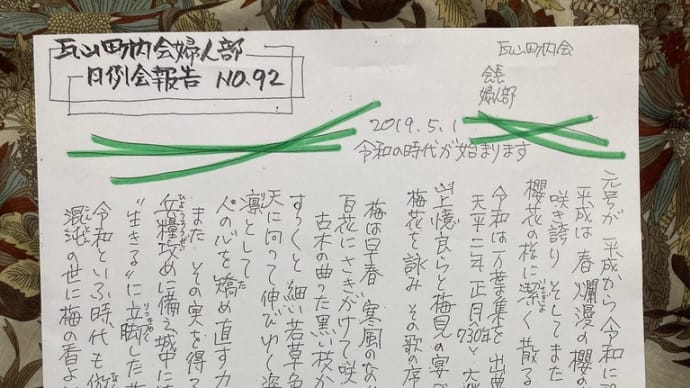 瓦山町内会婦人部
月例会報告 NO.92
瓦山町内会
会長
婦人部
2019.5.1
令和の時代が始まります
元号が 平成から令和に
平成は 春爛漫の櫻の
咲き誇り そしてまた
櫻花の様に潔く散る
令和は万葉集を出
天平二年 正月 730年
山上憶良らと梅見の宴
梅花を詠み その歌の序
梅は早春 寒風のな
百花にさきがけて咲
古木の曲った黒い枝か
すらくと 細い若草色
天に向って伸びゆく姿
凛として
人の心を矯め直す力
また その実を得る
兵糧攻めに備え城中に
"生きる"に立脚した
令和といふ時代も
混沌の世に梅の香よ